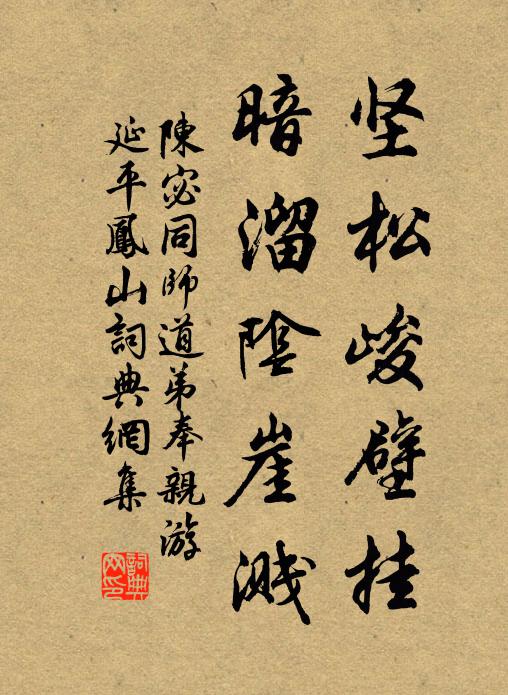 坚松峻壁挂
暗溜陰崖溅
陳宓同師道弟奉親游
延平鳳山詞典網集
詞典网印